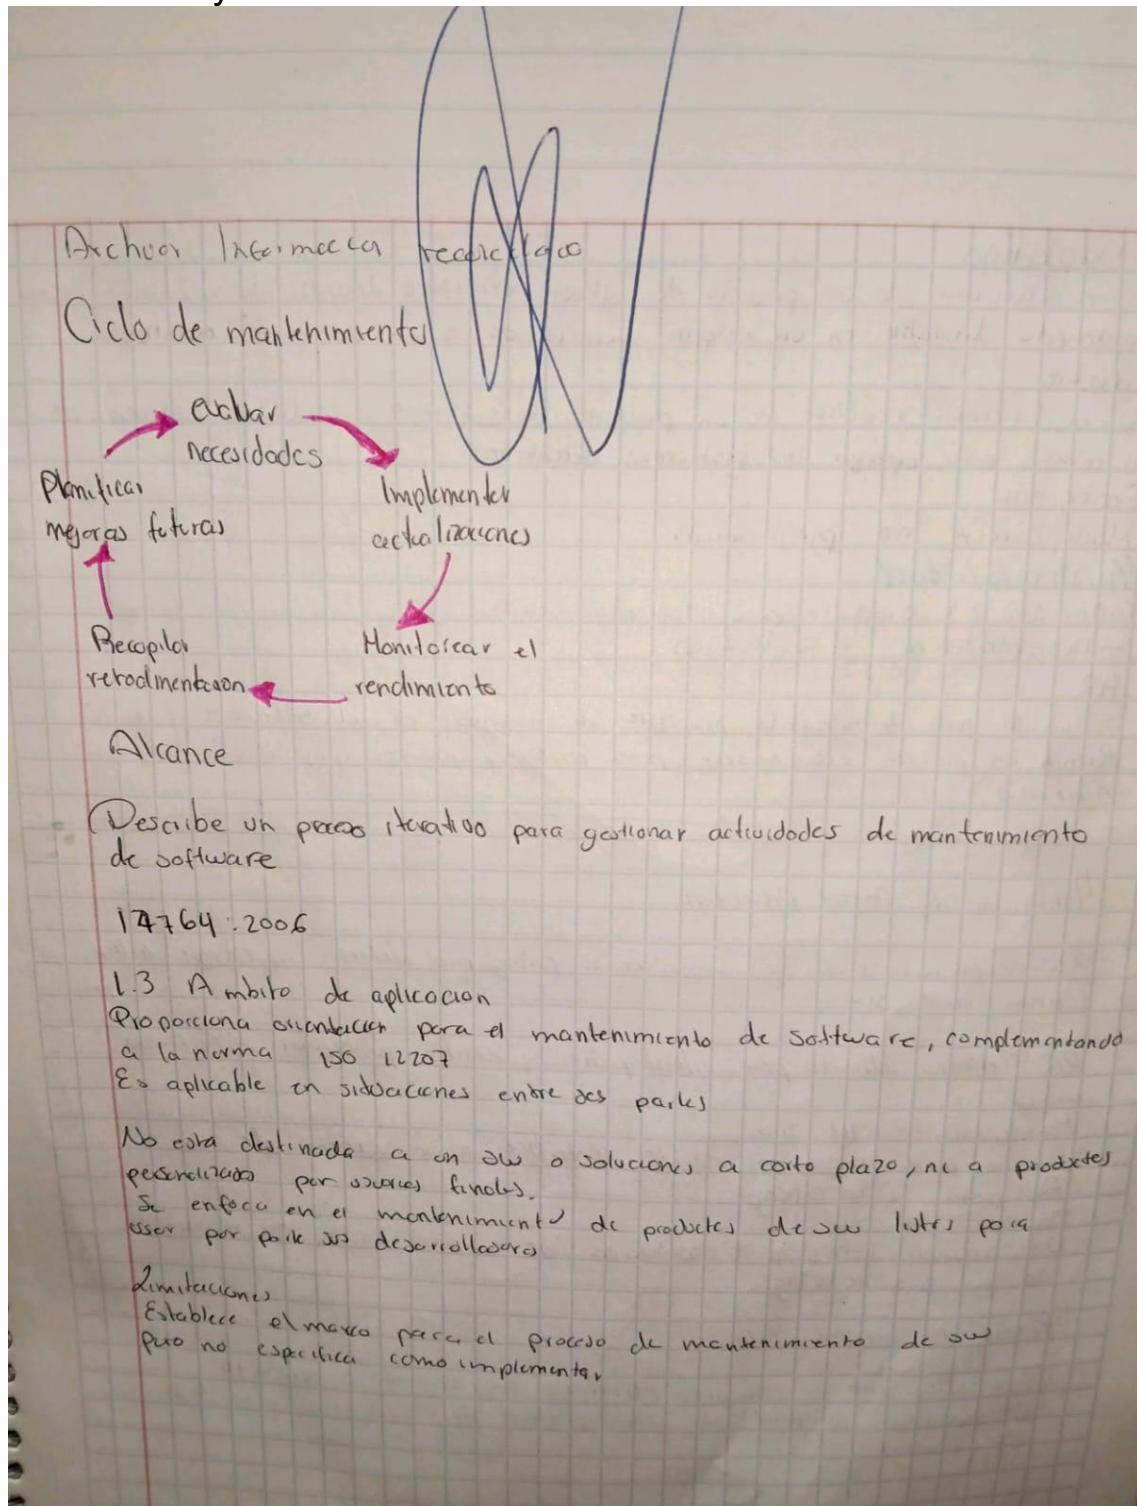 Ciclo de mantenimiento
evaluar
necesidades
Planificar
mejoras futuras
Implementar
actualizaciones
Recopilar
retroalimentacion
Monitorear el
rendimiento
Alcance
Describe un proceso iterativo para gestionar actividades de mantenimiento
de software
14764:2006
1.3 Ambito de aplicacion
Proporciona orientacion para el mantenimiento de software, complementando
a la norma ISO 12207
Es aplicable en situaciones entre partes
No esta destinada a un sw o soluciones a corto plazo, ni a productos
personalizados por usuarios finales.
Se enfoca en el mantenimiento de productos de sw listos para
usar por parte sus desarrolladores
Limitaciones
Establece el marco para el proceso de mantenimiento de sw
pero no especifica como implementar